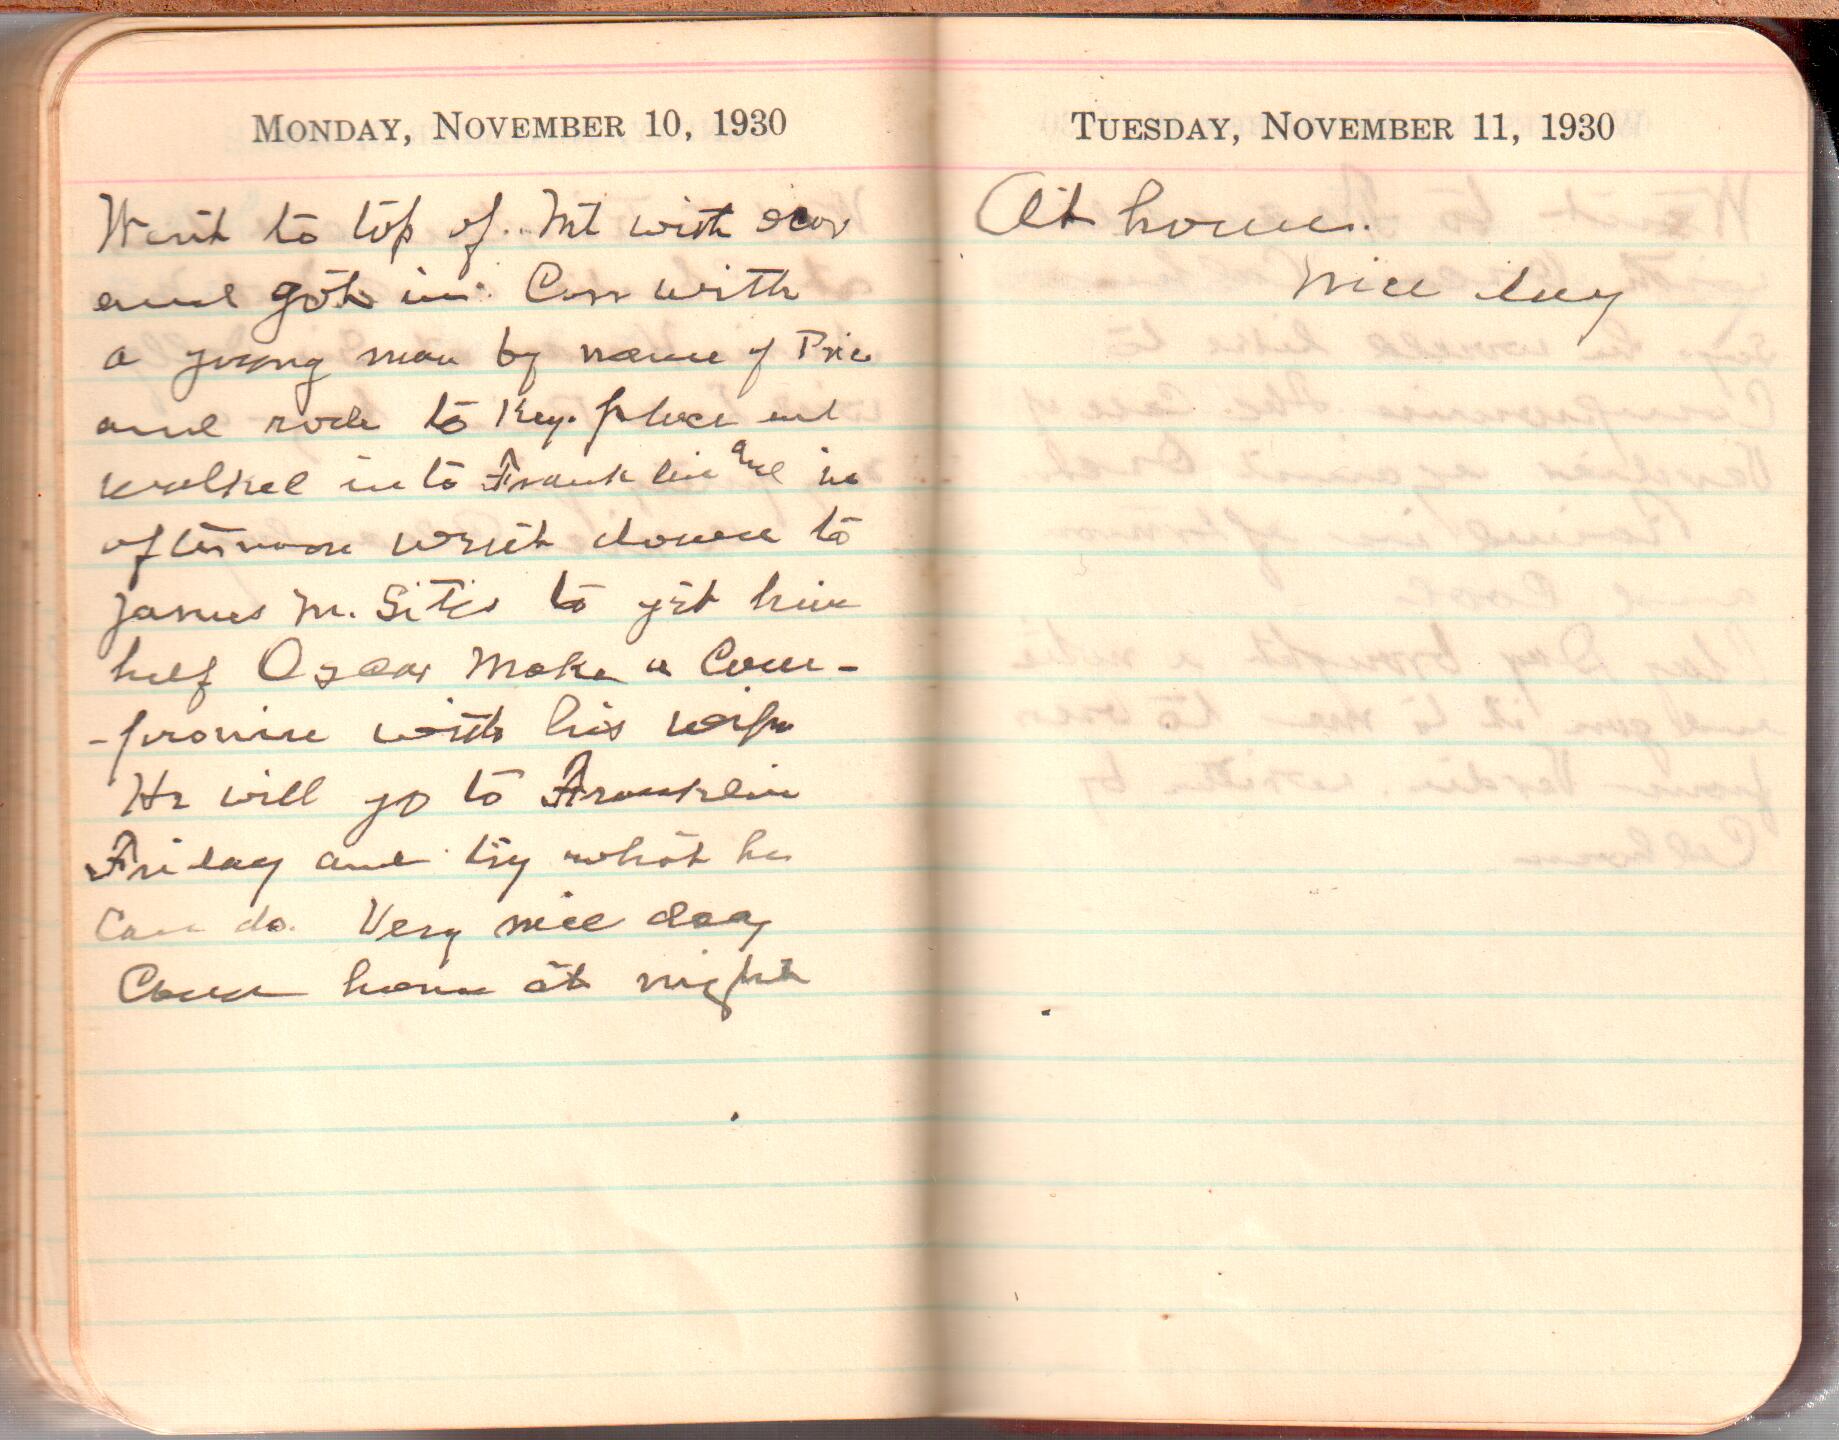 MONDAY, NOVEMBER 10, 1930
Went to top of Mt with
and got in Car with
a young man by name of Price
and rode to Key. place and
walked into Franklin and in
afternoon went down to
James M. Sites to get him
help Oscar Make a Com-
-promise with his wife
He will go to Franklin
Friday and try what he
Can do. Very nice day
Came home at night
TUESDAY, NOVEMBER 11, 1930
At home.
Nice day